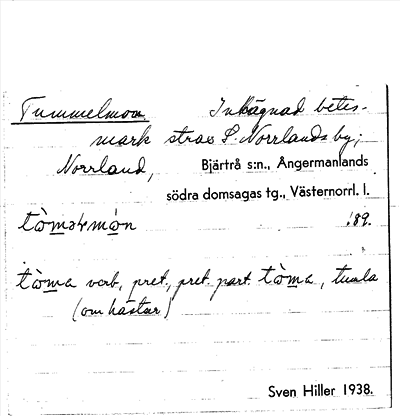 Tummelmon Inhägnad betes-
mark strax S. Norrlands by;
Norrland, Bjärtrå s:n., Ångermanlands
södra domsagas tg., Västernorrl. l.
189.
tòmərmòn
tòma verb, pret., pret. part. tòma, tumla
(om hästar)
Sven Hiller 1938.